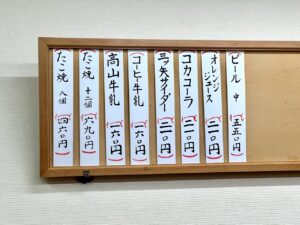 ビール 中 (五五〇円)
オレンジジュース (二一〇円)
コカコーラ (二一〇円)
三ツ矢サイダー (二一〇円)
コーヒー牛乳 (一六〇円)
高山牛乳 (一六〇円)
たこ焼 十二個 (六九〇円)
たこ焼 八個 (四六〇円)